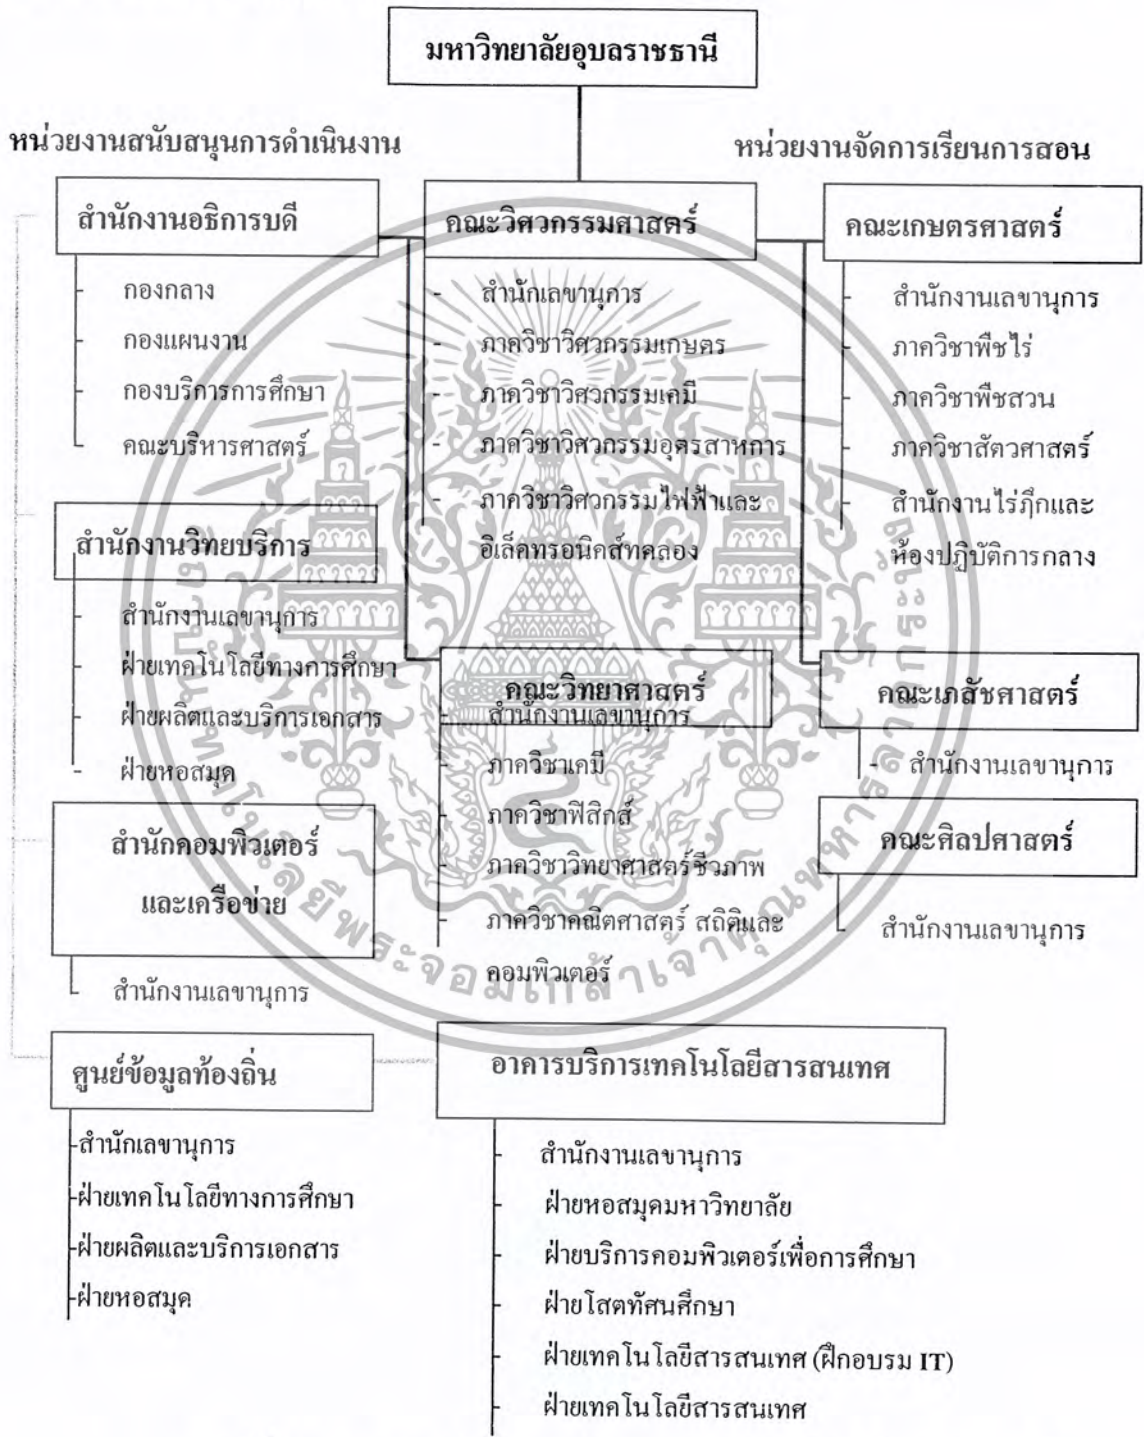 มหาวิทยาลัยอุบลราชธานี
หน่วยงานสนับสนุนการดำเนินงาน
หน่วยงานจัดการเรียนการสอน
สำนักงานอธิการบดี
- กองกลาง
- กองแผนงาน
- กองบริการการศึกษา
- คณะบริหารศาสตร์
สำนักงานวิทยบริการ
- สำนักงานเลขานุการ
- ฝ่ายเทคโนโลยีทางการศึกษา
- ฝ่ายผลิตและบริการเอกสาร
- ฝ่ายหอสมุด
สำนักคอมพิวเตอร์
และเครือข่าย
- สำนักงานเลขานุการ
ศูนย์ข้อมูลท้องถิ่น
-สำนักเลขานุการ
-ฝ่ายเทคโนโลยีทางการศึกษา
-ฝ่ายผลิตและบริการเอกสาร
-ฝ่ายหอสมุด
คณะวิศวกรรมศาสตร์
- สำนักเลขานุการ
- ภาควิชาวิศวกรรมเกษตร
- ภาควิชาวิศวกรรมเคมี
- ภาควิชาวิศวกรรมอุตรสาหการ
- ภาควิชาวิศวกรรมไฟฟ้าและ
อิเล็คทรอนิคส์ทคลอง
คณะวิทยาศาสตร์
- สำนักงานเลขานุการ
- ภาควิชาเคมี
- ภาควิชาฟิสิกส์
- ภาควิชาวิทยาศาสตร์ชีวภาพ
- ภาควิชาคณิตศาสตร์ สถิติและ
คอมพิวเตอร์
อาคารบริการเทคโนโลยีสารสนเทศ
- สำนักงานเลขานุการ
- ฝ่ายหอสมุดมหาวิทยาลัย
- ฝ่ายบริการคอมพิวเตอร์เพื่อการศึกษา
- ฝ่ายโสตทัศนศึกษา
- ฝ่ายเทคโนโลยีสารสนเทศ (ฝึกอบรม IT)
- ฝ่ายเทคโนโลยีสารสนเทศ
คณะเกษตรศาสตร์
- สำนักงานเลขานุการ
- ภาควิชาพืชไร่
- ภาควิชาพืชสวน
- ภาควิชาสัตวศาสตร์
- สำนักงานไร่ฦึกและ
ห้องปฏิบัติการกลาง
คณะเภสัชศาสตร์
- สำนักงานเลขานุการ
คณะศิลปศาสตร์
- สำนักงานเลขานุการ
สถาบันเทคโนโลยีพระจอมเกล้าเจ้าคุณทหารลาดกระบัง